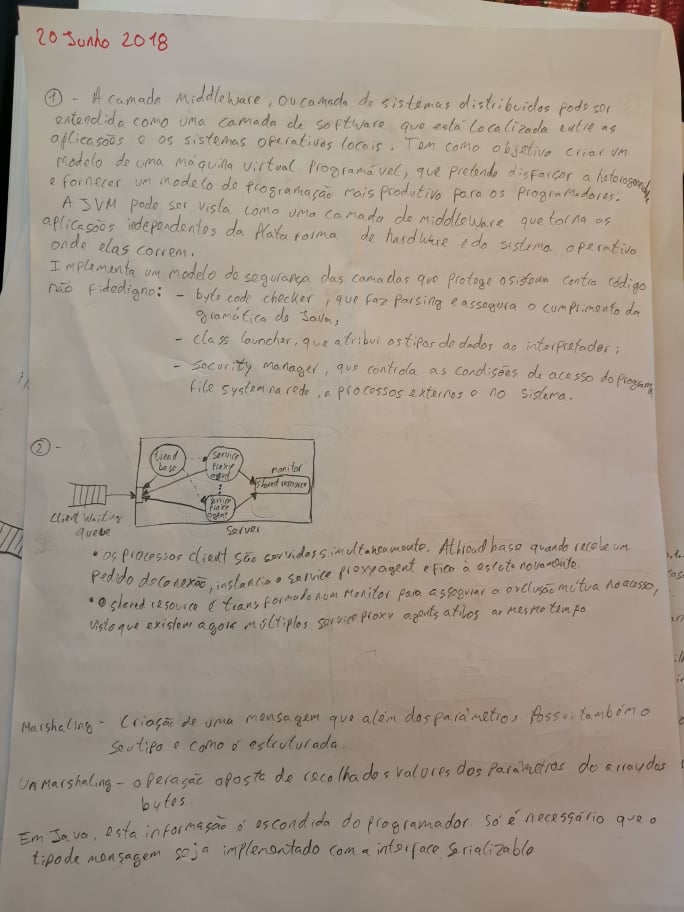 20 Junho 2018
① - A camada Middleware, ou camada de sistemas distribuidos pode ser
entendida como uma camada de software que está localizada entre as
aplicações e os sistemas operativos locais. Tem como objetivo criar um
modelo de uma máquina virtual programável, que pretende disfarçar a heterogeneidade
e fornecer um modelo de programação mais produtivo para os programadores.
A JVM pode ser vista como uma camada de middleware que torna as
aplicações independentes da plataforma de hardware e do sistema operativo
onde elas correm.
Implementa um modelo de segurança das camadas que protege o sistema contra código
não fidedigno: - byte code checker, que faz parsing e assegura o cumprimento da
gramática de Java;
- class launcher, que atribui os tipos de dados ao interpretador;
- Security manager, que controla as condições de acesso do programa
file system na rede, a processos externos e no sistema.
② -
tread base
Service proxy agent
monitor
shared resource
Service proxy agent
Client Waiting
queue
Server
• os processos client são servidos simultaneamente. A thread base quando recebe um
pedido de conexão, instancia o service proxy agent e fica à escuta novamente.
• O shared resource é transformado num monitor para assegurar a exclusão mútua no acesso,
visto que existem agora múltiplos service proxy agents ativos ao mesmo tempo
Marshaling - Criação de uma mensagem que além dos parâmetros, possui também o
seu tipo e como é estruturada.
UnMarshaling - operação oposta de recolha dos valores dos parâmetros do array dos
bytes.
Em Java, esta informação é escondida do programador. Só é necessário que o
tipo de mensagem seja implementado com a interface Serializable